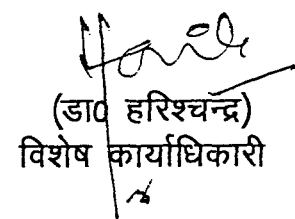 (डा0 हरिश्चन्द्र)
विशेष कार्याधिकारी